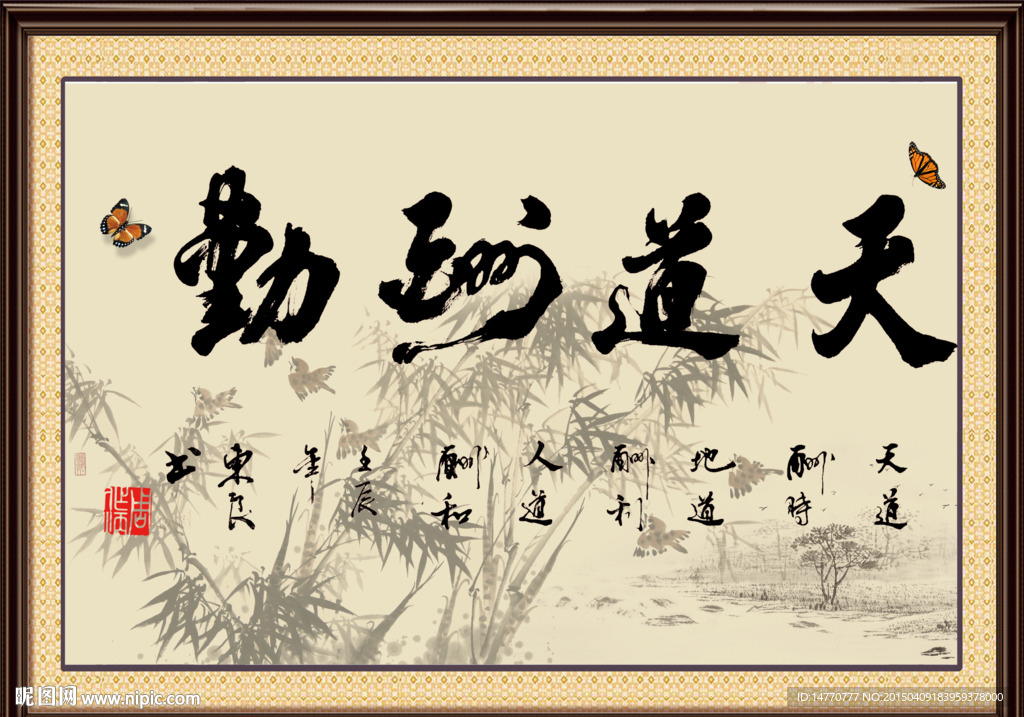 天道酬勤
天道
酬時
地道
酬利
人道
酬和
壬辰
年
東良
书
昵图网 www.nipic.com
ID:14770777 NO:20150409183959378000